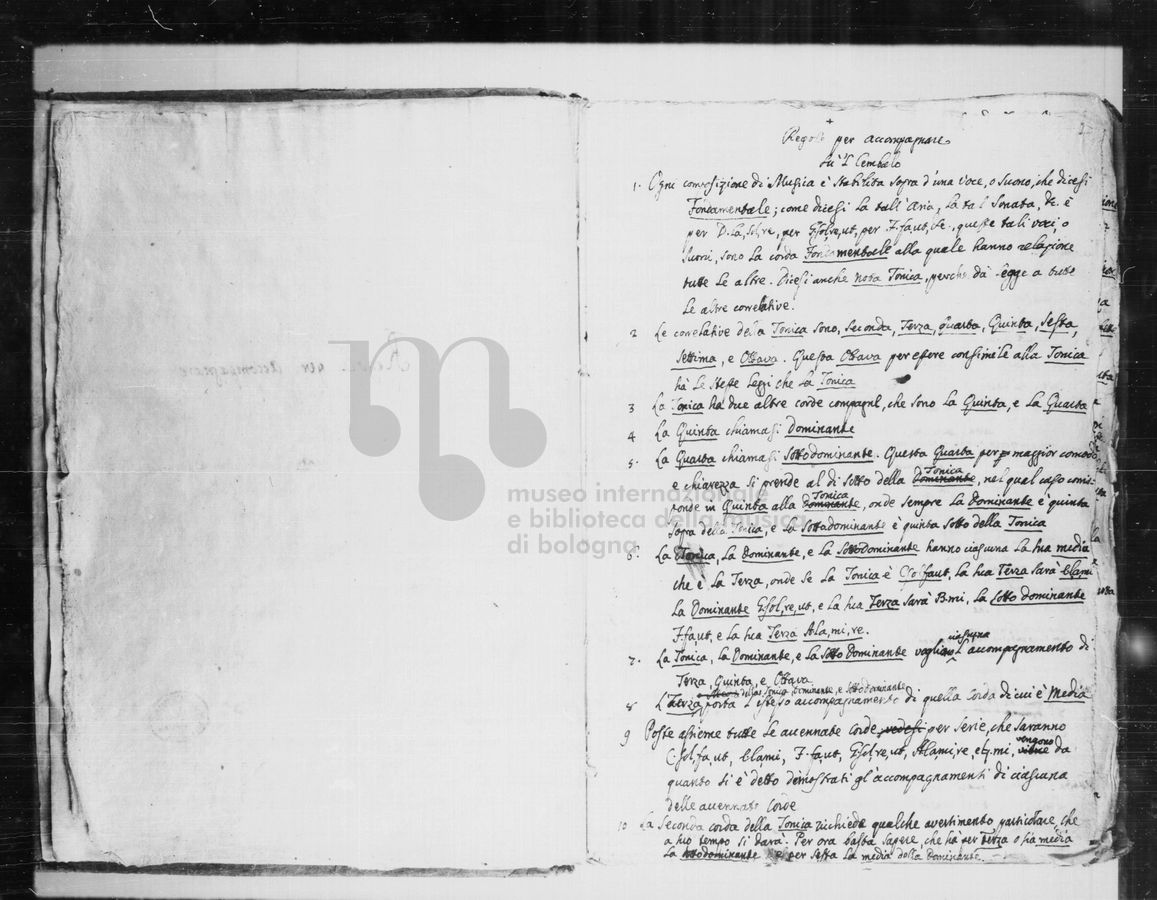 Regole per accompagnare
su'l Cembalo
1. Ogni composizione di Musica è stabilita sopra d'una voce, o suono, che dicesi
Fondamentale; come dicesi La tall'Aria, La tal Sonata, &c. è
per D.La,sol,re, per G,sol,re,ut, per F.fa,ut, &c., queste tali voci, o
suoni, sono La corda Fondamentale alla quale hanno relazione
tutte Le altre. Dicesi anche nota Tonica, perche dà Legge a tutte
Le altre correlative.
2 Le correlative della Tonica sono, Seconda, Terza, Quarta, Quinta, Sesta,
Settima, e Ottava. Questa Ottava per essere consimile alla Tonica
hà Le stesse Leggi che La Tonica
3 La Tonica ha due altre corde compagne, che sono La Quinta, e La Quarta
4 La Quinta chiamasi Dominante
5. La Quarta chiamasi Sottodominante. Questa Quarta per maggior comodo,
e chiarezza si prende al di sotto della Dominante Tonica, nel qual caso corris-
ponde in Quinta alla Dominante Tonica, onde sempre La Dominante è quinta
sopra della Tonica, e La Sottodominante è quinta sotto della Tonica
6. La Tonica, La Dominante, e La SottoDominante hanno ciascuna La sua media
che è La Terza, onde se La Tonica è C,sol,faut, La sua Terza sarà Elami
La Dominante G,sol,re,ut, e La sua Terza sarà B.mi, La sotto dominante
F.fa,ut, e La sua Terza A.la,mi,re.
7. La Tonica, La Dominante, e La Sotto Dominante vogliono ciascuna L'accompagnamento di
Terza, Quinta, e Ottava
8 L'Terza della Tonica, Dominante, e Sottodominante porta L'istesso accompagnamento di quella corda di cui è Media
9 Poste assieme tutte Le avennate corde vedesi per serie, che saranno
C,sol,fa,ut, Elami, F.fa,ut, G,sol,re,ut, Alami,re, e mi, vengono da
quanto si è detto dimostrati gl'accompagnamenti di ciascuna
delle avennate corde
10 La Seconda corda della Tonica richiede qualche avertimento particolare, che
a suo tempo si darà. Per ora basta sapere, che hà per Terza o sia media
La sottodominante e per Sesta La media della Dominante.
museo internazionale
e biblioteca della musica
di bologna